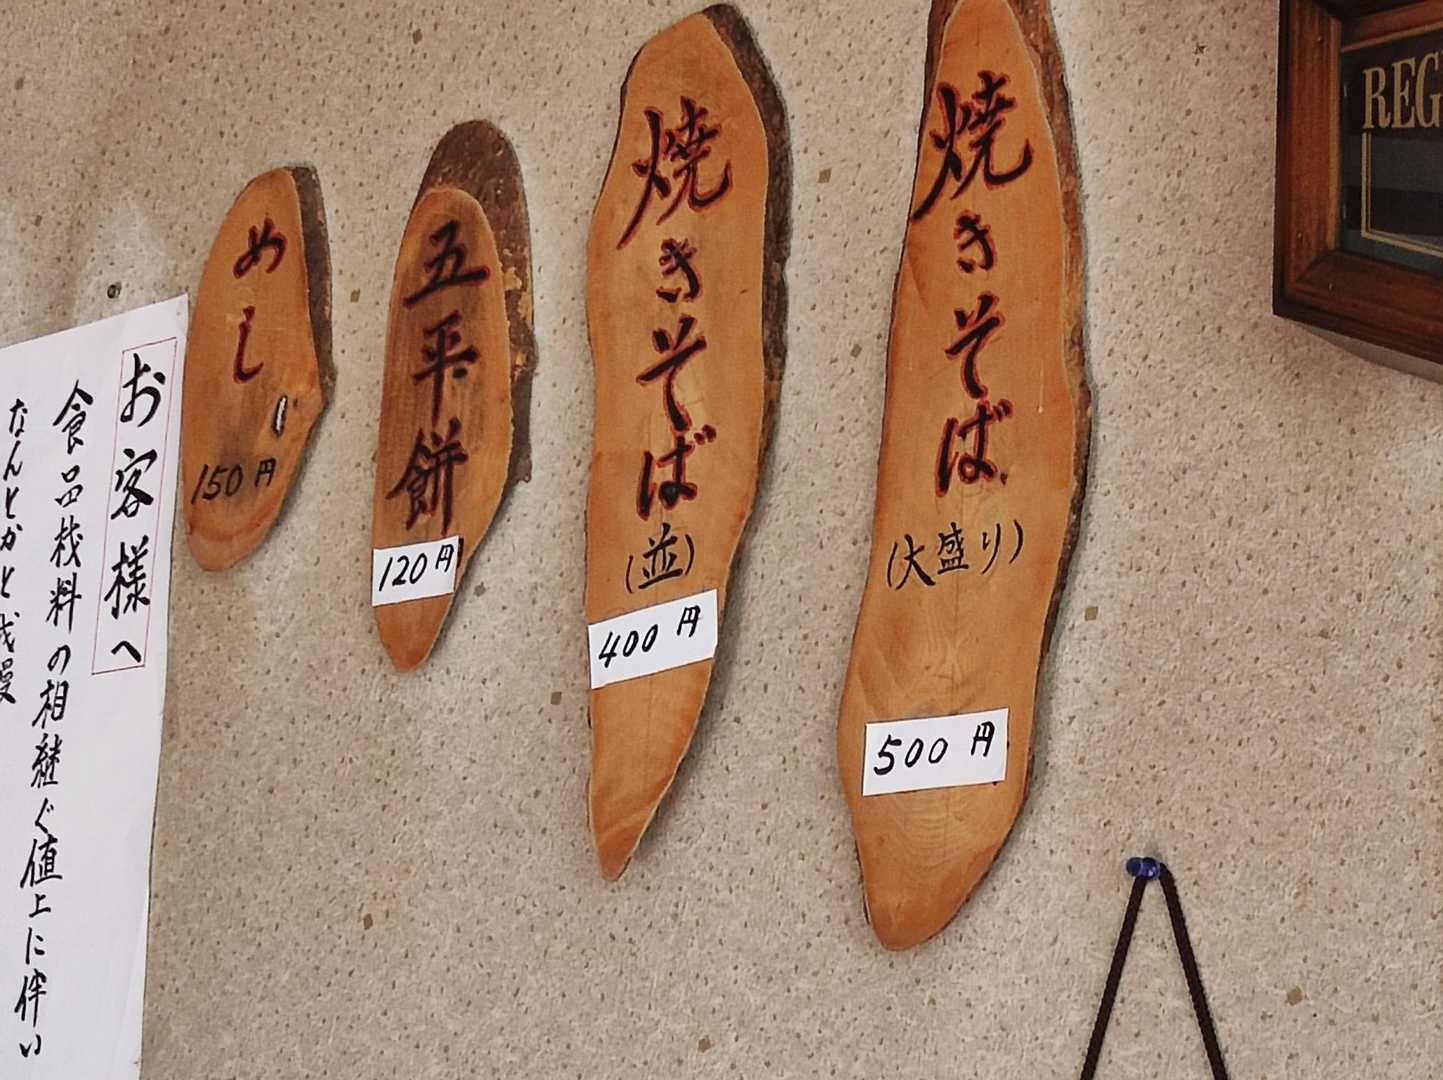 焼きそば
(大盛り)
500円
焼きそば
(並)
400円
五平餅
120円
めし
150円
お客様へ
食品材料の相継ぐ値上に伴い
なんとか
REG